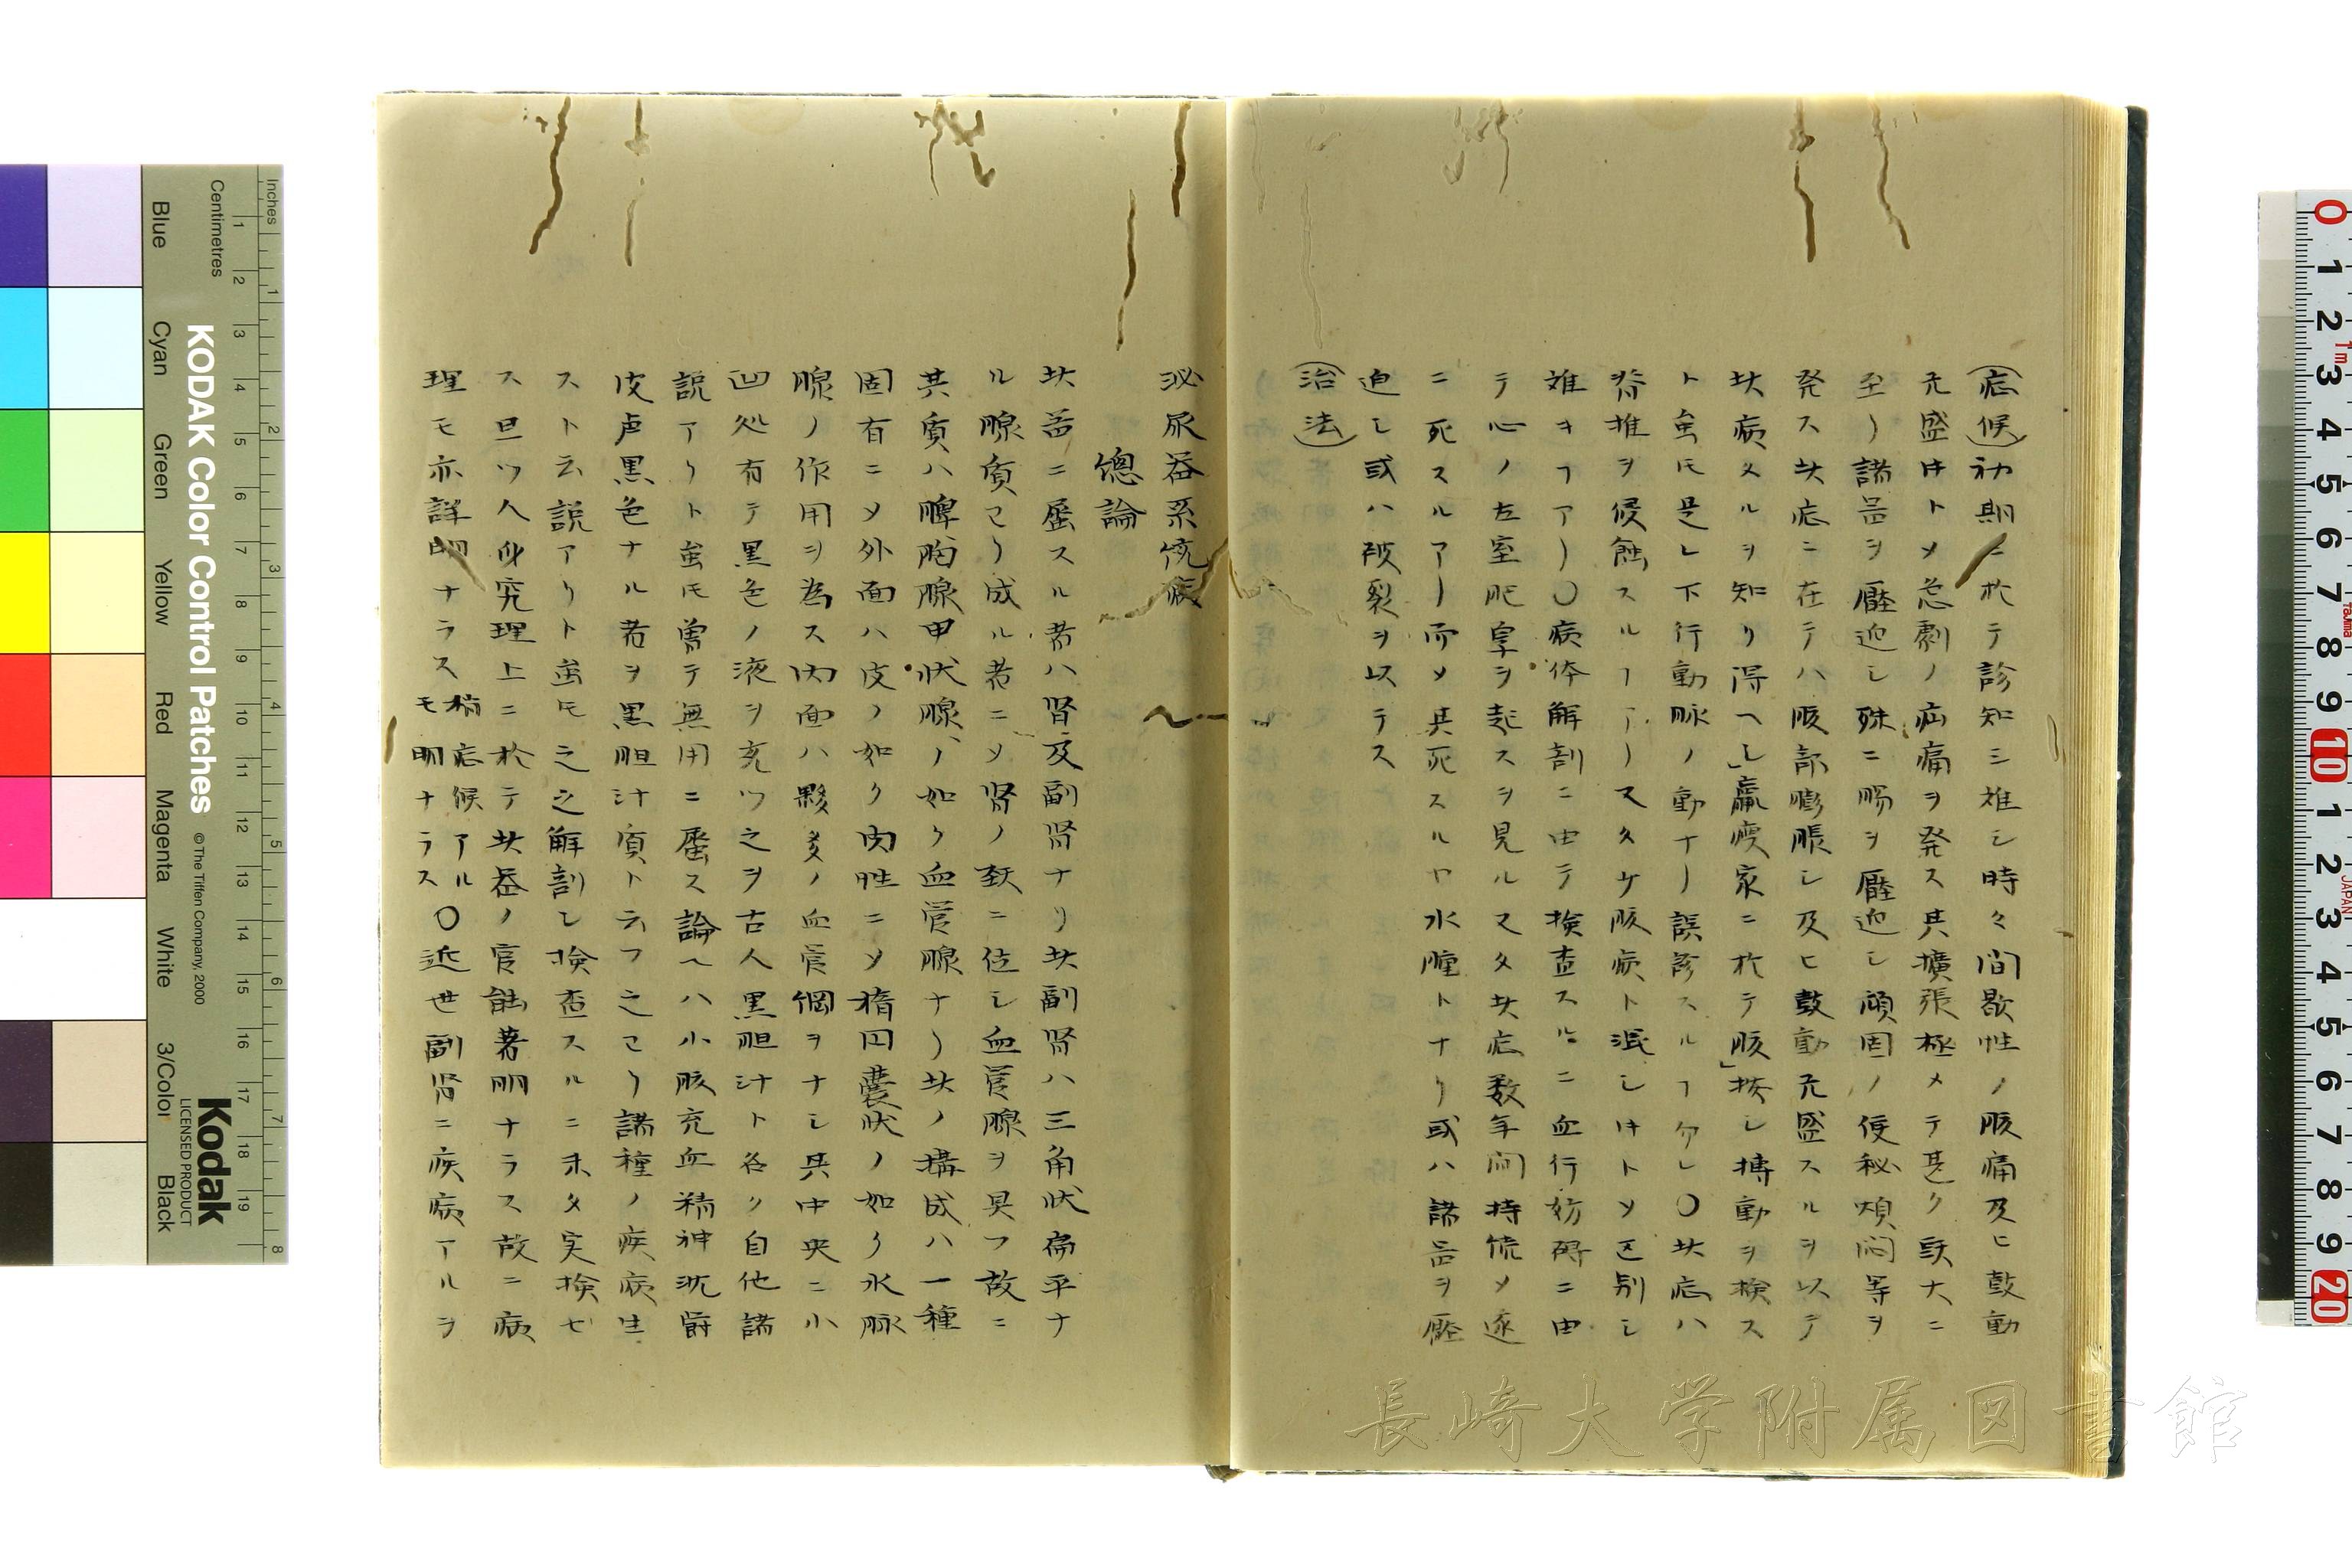 (症候)初期ニ於テ診知シ難シ時々間歇性ノ腹痛及ヒ鼓動
亢盛スルトメ忽劇ノ疝痛ヲ発ス其擴張極メテ甚ク頭大ニ
至リ諸器ヲ壓迫シ殊ニ腸ヲ壓迫シ頑固ノ便秘煩悶等ヲ
発ス此症ニ在テハ腹部膨脹シ及ヒ鼓動亢盛スルヲ以テ
此病タルヲ知リ得ヘシ羸痩家ニ於テ腹ヲ按シ搏動ヲ検ス
ト雖𪜈是レ下行動脉ノ動ナリ誤診スルヿ勿レ〇此症ハ
脊椎ヲ侵蝕スルヿアリ又タ子腹病ト混シ
難キヿアリ〇病体解剖ニ由テ検査スルニ血行妨碍ニ由
テ心ノ左室肥厚ヲ起スヲ見ル又タ此症数年間持続メ遂
ニ死スルアリ而メ其死スルヤ水腫トナリ或ハ諸器ヲ壓
迫シ或ハ破裂ヲ以テス
(治法)
泌尿器系統病
總論
此器ニ属スル者ハ腎及副腎ナリ此副腎ハ三角状扁平ナ
ル腺質ヨリ成ル者ニメ腎ノ頚ニ位シ血管腺ヲ具フ故ニ
其質ハ脾胸腺甲状腺ノ如ク血管腺ナリ此ノ搆成ハ一種
固有ニメ外面ハ皮ノ如ク肉性ニメ楕円嚢状ノ如ク水脉
腺ノ作用ヲ為ス内面ハ夥多ノ血管網ヲナシ其中央ニ小
凹処有テ黒色ノ液ヲ充ツ之ヲ古人黒胆汁ト名ク自他諸
説アリト雖𪜈曽テ無用ニ属ス論ヘハ小腹充血精神沈欝
皮膚黒色ナル者ヲ黒胆汁質ト云フ之ヨリ諸種ノ疾病生
スト云説アリト雖𪜈之之解剖シ検査スルニ未タ実検セ
ス且ツ人身究理上ニ於テ此器ノ官能著明ナラス故ニ病
理モ亦詳明ナラス 稍症候アル
モ明ナラス〇近世副腎ニ疾病アルヲ
KODAK Color Control Patches
© The Tiffen Company, 2000
Kodak
LICENSED PRODUCT
Inches
Centimetres
Blue
Cyan
Green
Yellow
Red
Magenta
White
3/Color
Black
長崎大学附属図書館